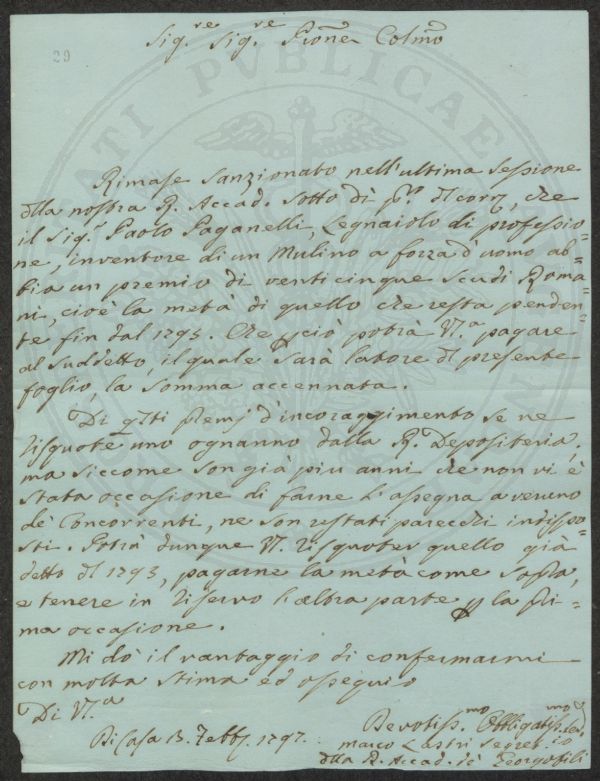 29
Sig.re Sig.re Prone Colmo
Rimase sanzionato nell'ultima sessione
dlla nostra R. Accad. sotto dì pº. dl corr., che
il Sig.r Paolo Paganelli, Legnaiolo di professio=
ne, inventore di un Mulino a forza d'uomo ab=
bia un premio di venticinque scudi Roma=
ni, cioè la metà di quello che resta penden=
te fin dal 1793. Che pciò potrà V.S.a pagare
al suddetto, il quale sarà latore dl presente
foglio, la somma accennata.
Di qsti premj d'incoraggimento se ne
risquote uno ognanno dalla R. Depositeria,
ma siccome son già piu anni che non vi è
stata occasione di farne l'assegna a veruno
de' Concorrenti, ne son restati parecchi indispo=
sti. Potrà dunque VS. risquoter quello già
detto dl 1793, pagarne la metà come sopra,
e tenere in riservo l'altra parte p la pri=
ma occasione.
Mi dò il vantaggio di confermarmi
con molta stima ed ossequio
Di VS.a
Di Casa 13. Febb. 1797.
Devotiss.mo Obbligatiss.mo
marco Lastri Segret.io
dlla R. Accad. de' Georgofili